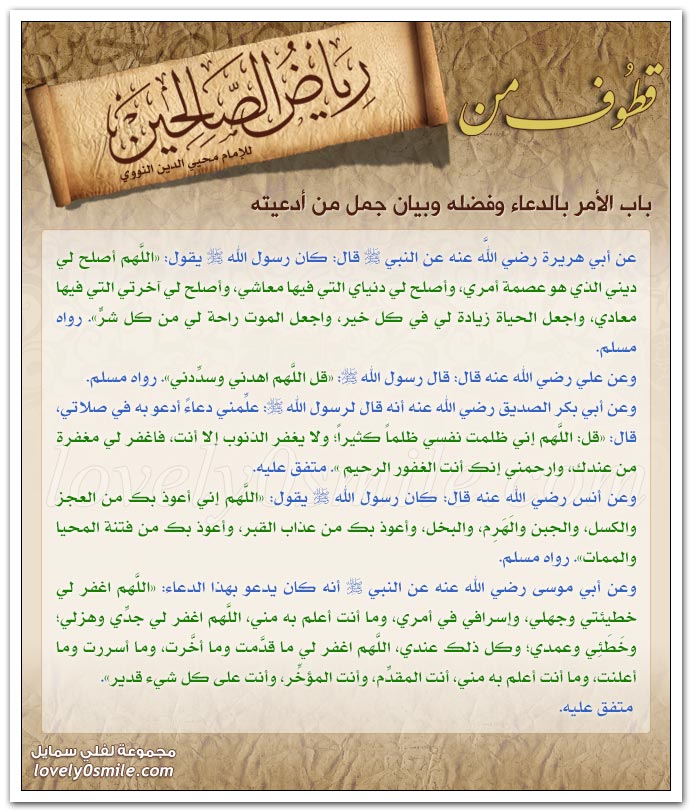 قطوف من
رياض الصالحين
للإمام محيي الدين النووي
باب الأمر بالدعاء وفضله وبيان جمل من أدعيته
عن أبي هريرة رضي اللَّه عنه عن النبي ﷺ قال: كان رسول الله ﷺ يقول: «اللَّهم أصلح لي
ديني الذي هو عصمة أمري، وأصلح لي دنياي التي فيها معاشي، وأصلح لي آخرتي التي فيها
معادي، واجعل الحياة زيادة لي في كل خير، واجعل الموت راحة لي من كل شرٍّ». رواه
مسلم.
وعن علي رضي الله عنه قال: قال رسول الله ﷺ: «قل اللَّهم اهدني وسدِّدني». رواه مسلم.
وعن أبي بكر الصديق رضي الله عنه أنه قال لرسول الله ﷺ: علِّمني دعاءً أدعو به في صلاتي،
قال: «قل: اللَّهم إني ظلمت نفسي ظلماً كثيراً؛ ولا يغفر الذنوب إلا أنت، فاغفر لي مغفرة
من عندك، وارحمني إنك أنت الغفور الرحيم ». متفق عليه.
وعن أنس رضي الله عنه قال: كان رسول الله ﷺ يقول: «اللَّهم إني أعوذ بك من العجز
والكسل، والجبن والهَرِم، والبخل، وأعوذ بك من عذاب القبر، وأعوذ بك من فتنة المحيا
والممات». رواه مسلم.
وعن أبي موسى رضي الله عنه عن النبي ﷺ أنه كان يدعو بهذا الدعاء: «اللَّهم اغفر لي
خطيئتي وجهلي، وإسرافي في أمري، وما أنت أعلم به مني، اللَّهم اغفر لي جدِّي وهزلي؛
وخَطَئِي وعمدي؛ وكل ذلك عندي، اللَّهم اغفر لي ما قدَّمت وما أخَّرت، وما أسررت وما
أعلنت، وما أنت أعلم به مني، أنت المقدِّم، وأنت المؤخِّر، وأنت على كل شيء قدير».
متفق عليه.
lovely0smile.com
مجموعة لفلي سمايل
lovely0smile.com